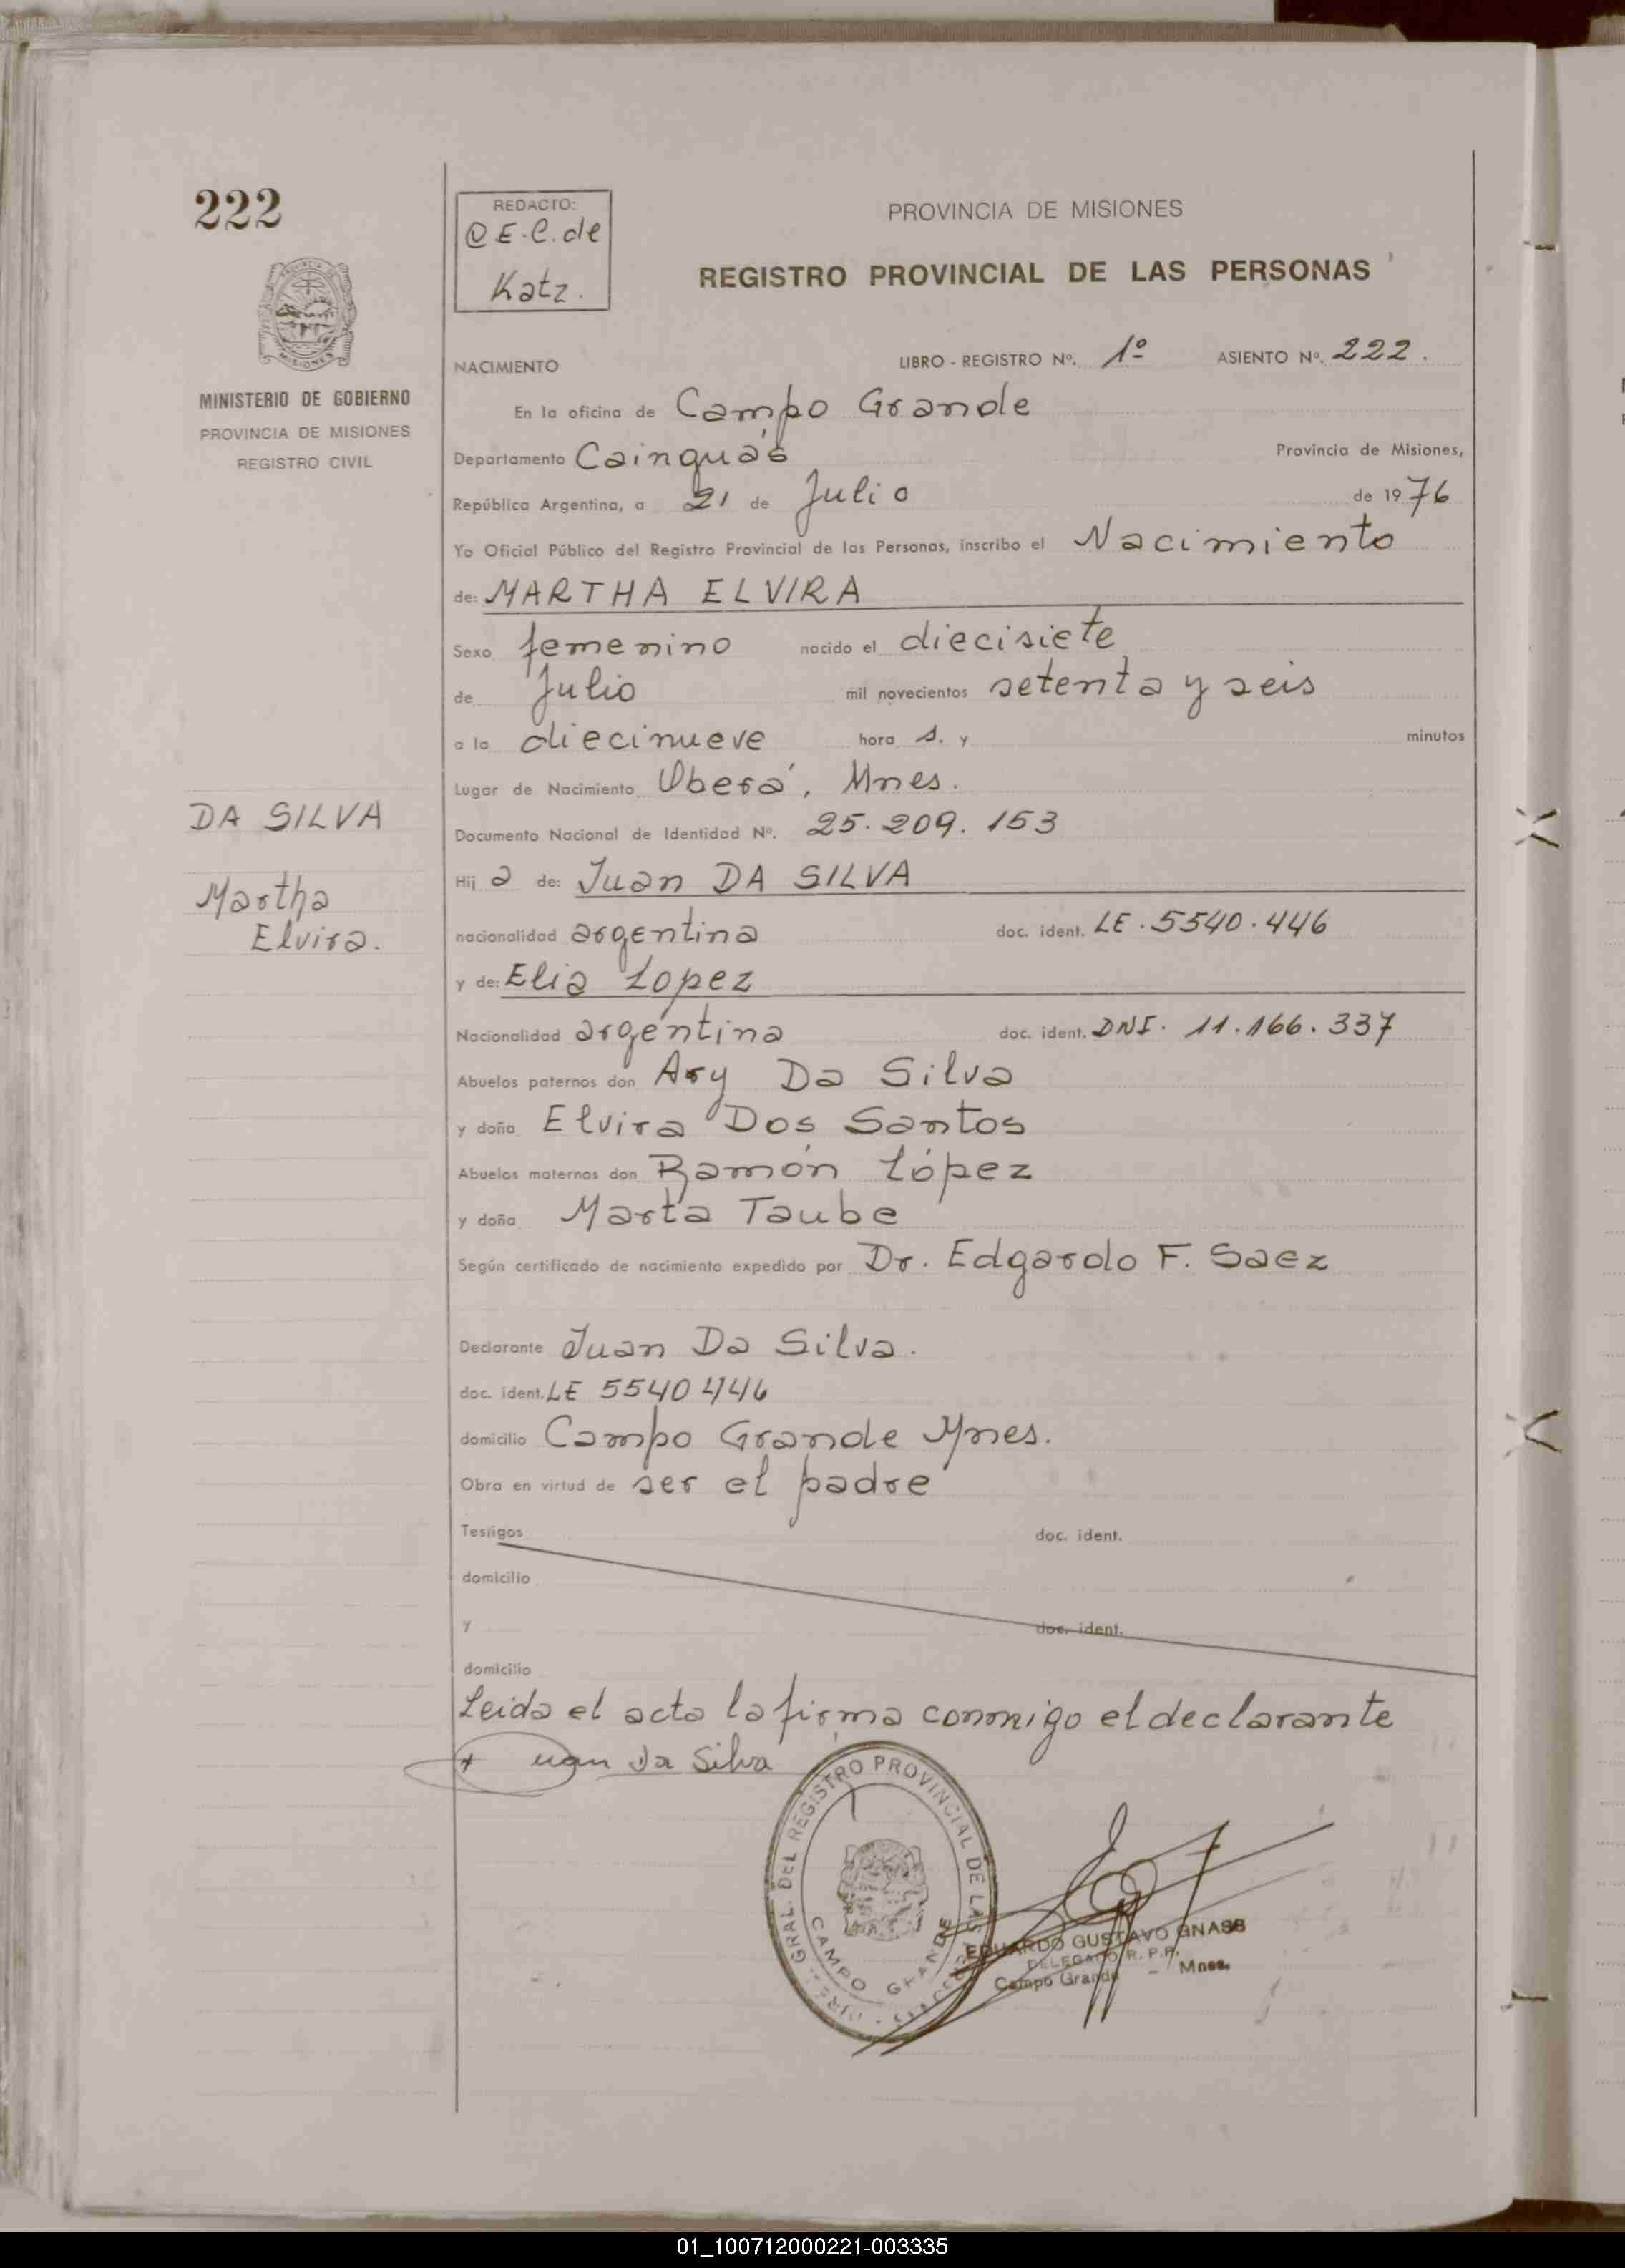 222
MINISTERIO DE GOBIERNO
PROVINCIA DE MISIONES
REGISTRO CIVIL
DA SILVA
Martha
Elvira.
REDACTO:
E.C. de
Katz.
PROVINCIA DE MISIONES
REGISTRO PROVINCIAL DE LAS PERSONAS
NACIMIENTO LIBRO - REGISTRO Nº. 1º ASIENTO Nº. 222.
En la oficina de Campo Grande
Departamento Cainguás Provincia de Misiones,
República Argentina, a 21 de Julio de 1976
Yo Oficial Público del Registro Provincial de las Personas, inscribo el Nacimiento
de: MARTHA ELVIRA
Sexo femenino nacido el diecisiete
de Julio mil novecientos setenta y seis
a la diecinueve hora s. y minutos
Lugar de Nacimiento Oberá, Mnes.
Documento Nacional de Identidad Nº. 25.209.153
Hij a de: Juan DA SILVA
nacionalidad argentina doc. ident. LE. 5540.446
y de: Elia Lopez
Nacionalidad argentina doc. ident. DNI. 11.166.337
Abuelos paternos don Ary Da Silva
y doña Elvira Dos Santos
Abuelos maternos don Ramón López
y doña Marta Taube
Según certificado de nacimiento expedido por Dr. Edgardo F. Saez
Declarante Juan Da Silva.
doc. ident. LE 5540446
domicilio Campo Grande Mnes.
Obra en virtud de ser el padre
Testigos doc. ident.
domicilio
y doc. ident.
domicilio
Leida el acta la firma conmigo el declarante
Juan Da Silva
GRAL. DEL REGISTRO PROVINCIAL DE LAS
CAMPO GRANDE
EDUARDO GUSTAVO GNASS
DELEGADO R. P. P.
Campo Grande - Mnes.
01_100712000221-003335